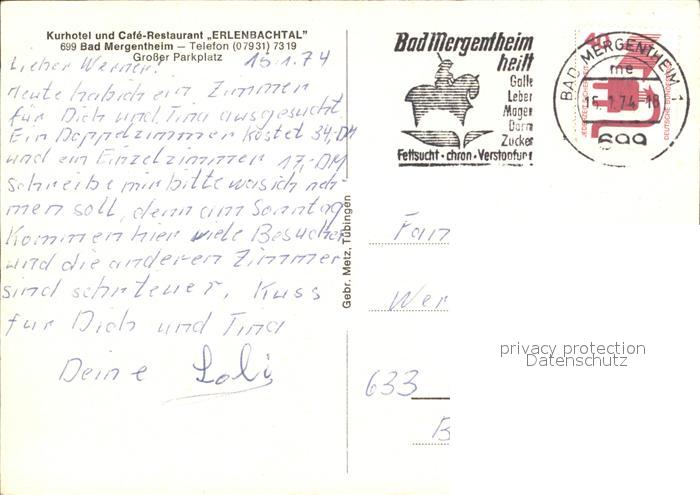 Kurhotel und Café-Restaurant „ERLENBACHTAL"
699 Bad Mergentheim — Telefon (07931) 7319
Großer Parkplatz
15.1.74
Lieber Werner!
Heute hab ich ein Zimmer
für Dich und Tina ausgesucht.
Ein Doppelzimmer kostet 34,-DM
und ein Einzelzimmer 17,-DM
Schreibe mir bitte was ich neh-
men soll, denn am Sonntag
kommen hier viele Besucher
und die anderen Zimmer
sind sehr teuer. Kuss
für Dich und Tina
Deine Loli
Gebr. Metz, Tübingen
Bad Mergentheim
heilt
Galle
Leber
Magen
Darm
Zucker
Fettsucht · chron · Verstopfung
BAD MERGENTHEIM 1
me
16.1.74-18
699
DEUTSCHE BUNDESPOST
Fam
Wer
633
B
privacy protection
Datenschutz